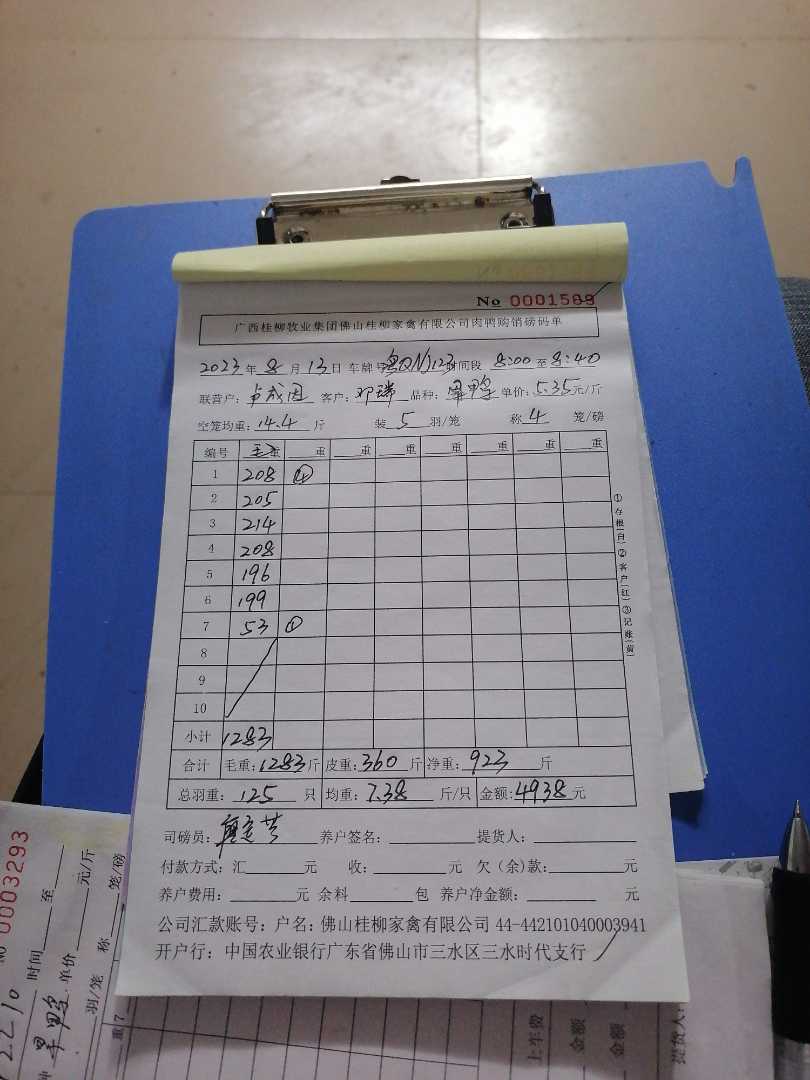 No 0001589
广西桂柳牧业集团佛山桂柳家禽有限公司肉鸭购销磅码单
2023年8月13日 车牌号 时间段8:00至8:40
联营户: 客户:邓瑞 品种: 鸭 单价:5.35元/斤
空笼均重:14.4斤 装5羽/笼 称4笼/磅
编号 毛重 重 重 重 重 重 重 重
1 208 ④
2 205
3 214
4 208
5 196
6 199
7 53 ①
8
9
10
小计 1283
合计 毛重:1283斤 皮重:360斤 净重:923斤
总羽重:125只 均重:7.38斤/只 金额:4938元
①存根(白)②客户(红)③记账(黄)
司磅员: 养户签名: 提货人:
付款方式:汇 元 收: 元 欠(余)款: 元
养户费用: 元 余料 包 养户净金额: 元
公司汇款账号:户名:佛山桂柳家禽有限公司 44-442101040003941
开户行:中国农业银行广东省佛山市三水区三水时代支行
No 0003293
时间 至
单价 元/斤
羽/笼 称 笼/磅
重
上车费
金额
金额
提货人: